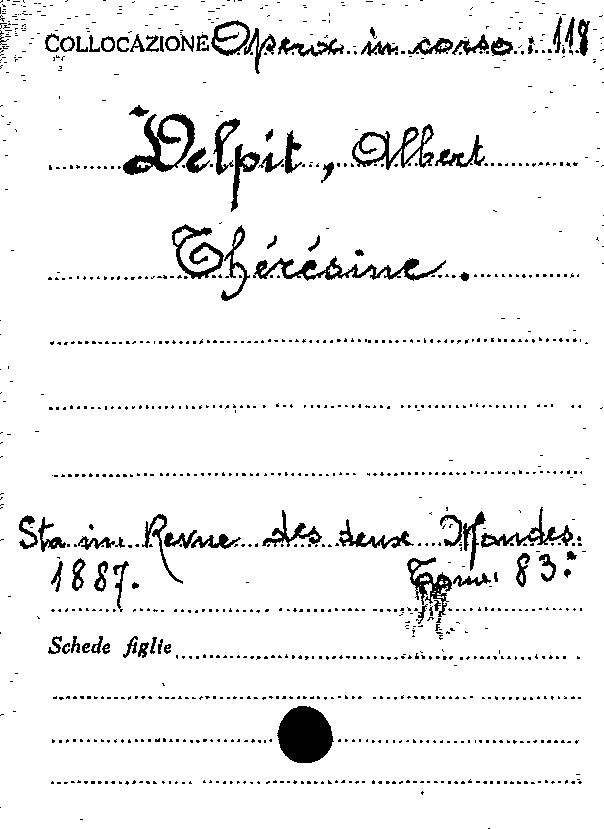 COLLOCAZIONE Opera in corso: 118
Delpit, Albert
Thérésine.
Sta in: Revue des deux Mondes.
1887. Tome. 83º
Schede figlie